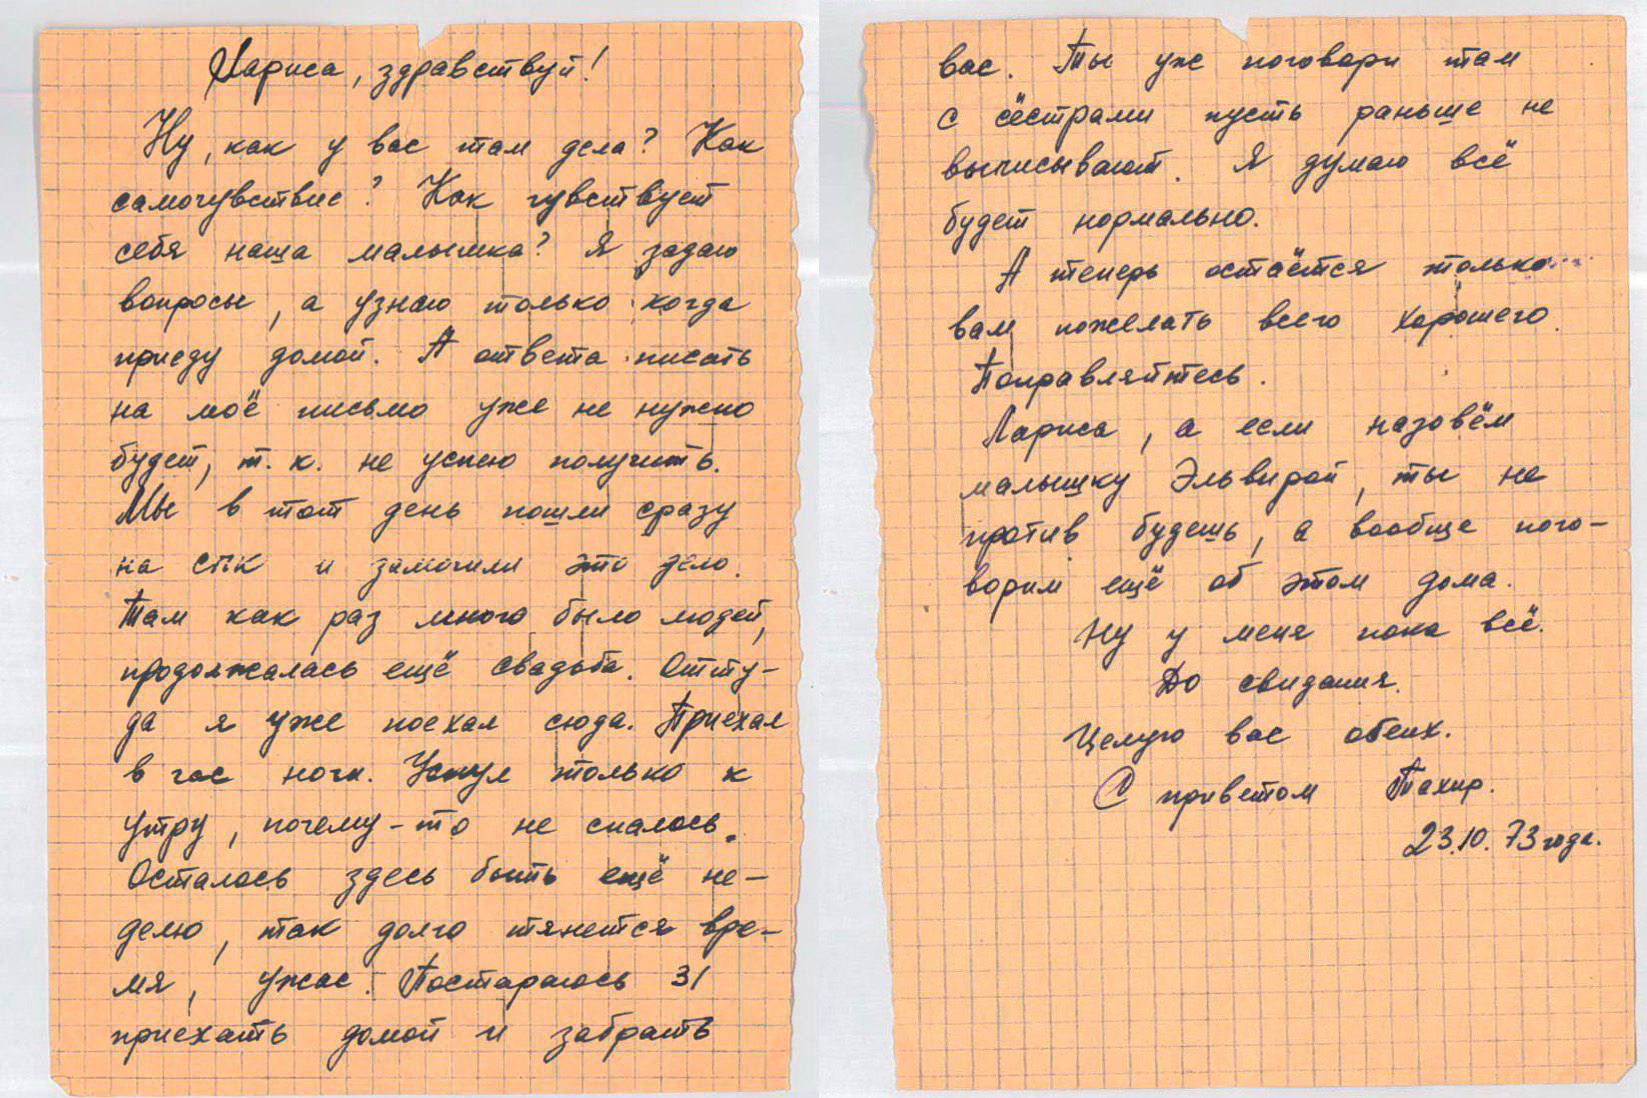 Лариса, здравствуй!
Ну, как у вас там дела? Как
самочувствие? Как чувствует
себя наша малышка? Я задаю
вопросы, а узнаю только когда
приеду домой. А ответа писать
на моё письмо уже не нужно
будет, т. к. не успею получить.
Мы в тот день пошли сразу
на СПК и замочили это дело.
Там как раз много было людей,
продолжалась ещё свадьба. Отту-
да я уже поехал сюда. Приехал
в час ночи. Уснул только к
утру, почему-то не спалось.
Осталось здесь быть ещё не-
делю, так долго тянется вре-
мя, ужас. Постараюсь 31
приехать домой и забрать
вас. Ты уже поговори там
с сёстрами пусть раньше не
выписывают. Я думаю всё
будет нормально.
А теперь остаётся только
вам пожелать всего хорошего.
Поправляйтесь.
Лариса, а если назовём
малышку Эльвирой, ты не
против будешь, а вообще пого-
ворим ещё об этом дома.
Ну у меня пока всё.
До свидания.
Целую вас обеих.
С приветом Тахир.
23.10.73 года.